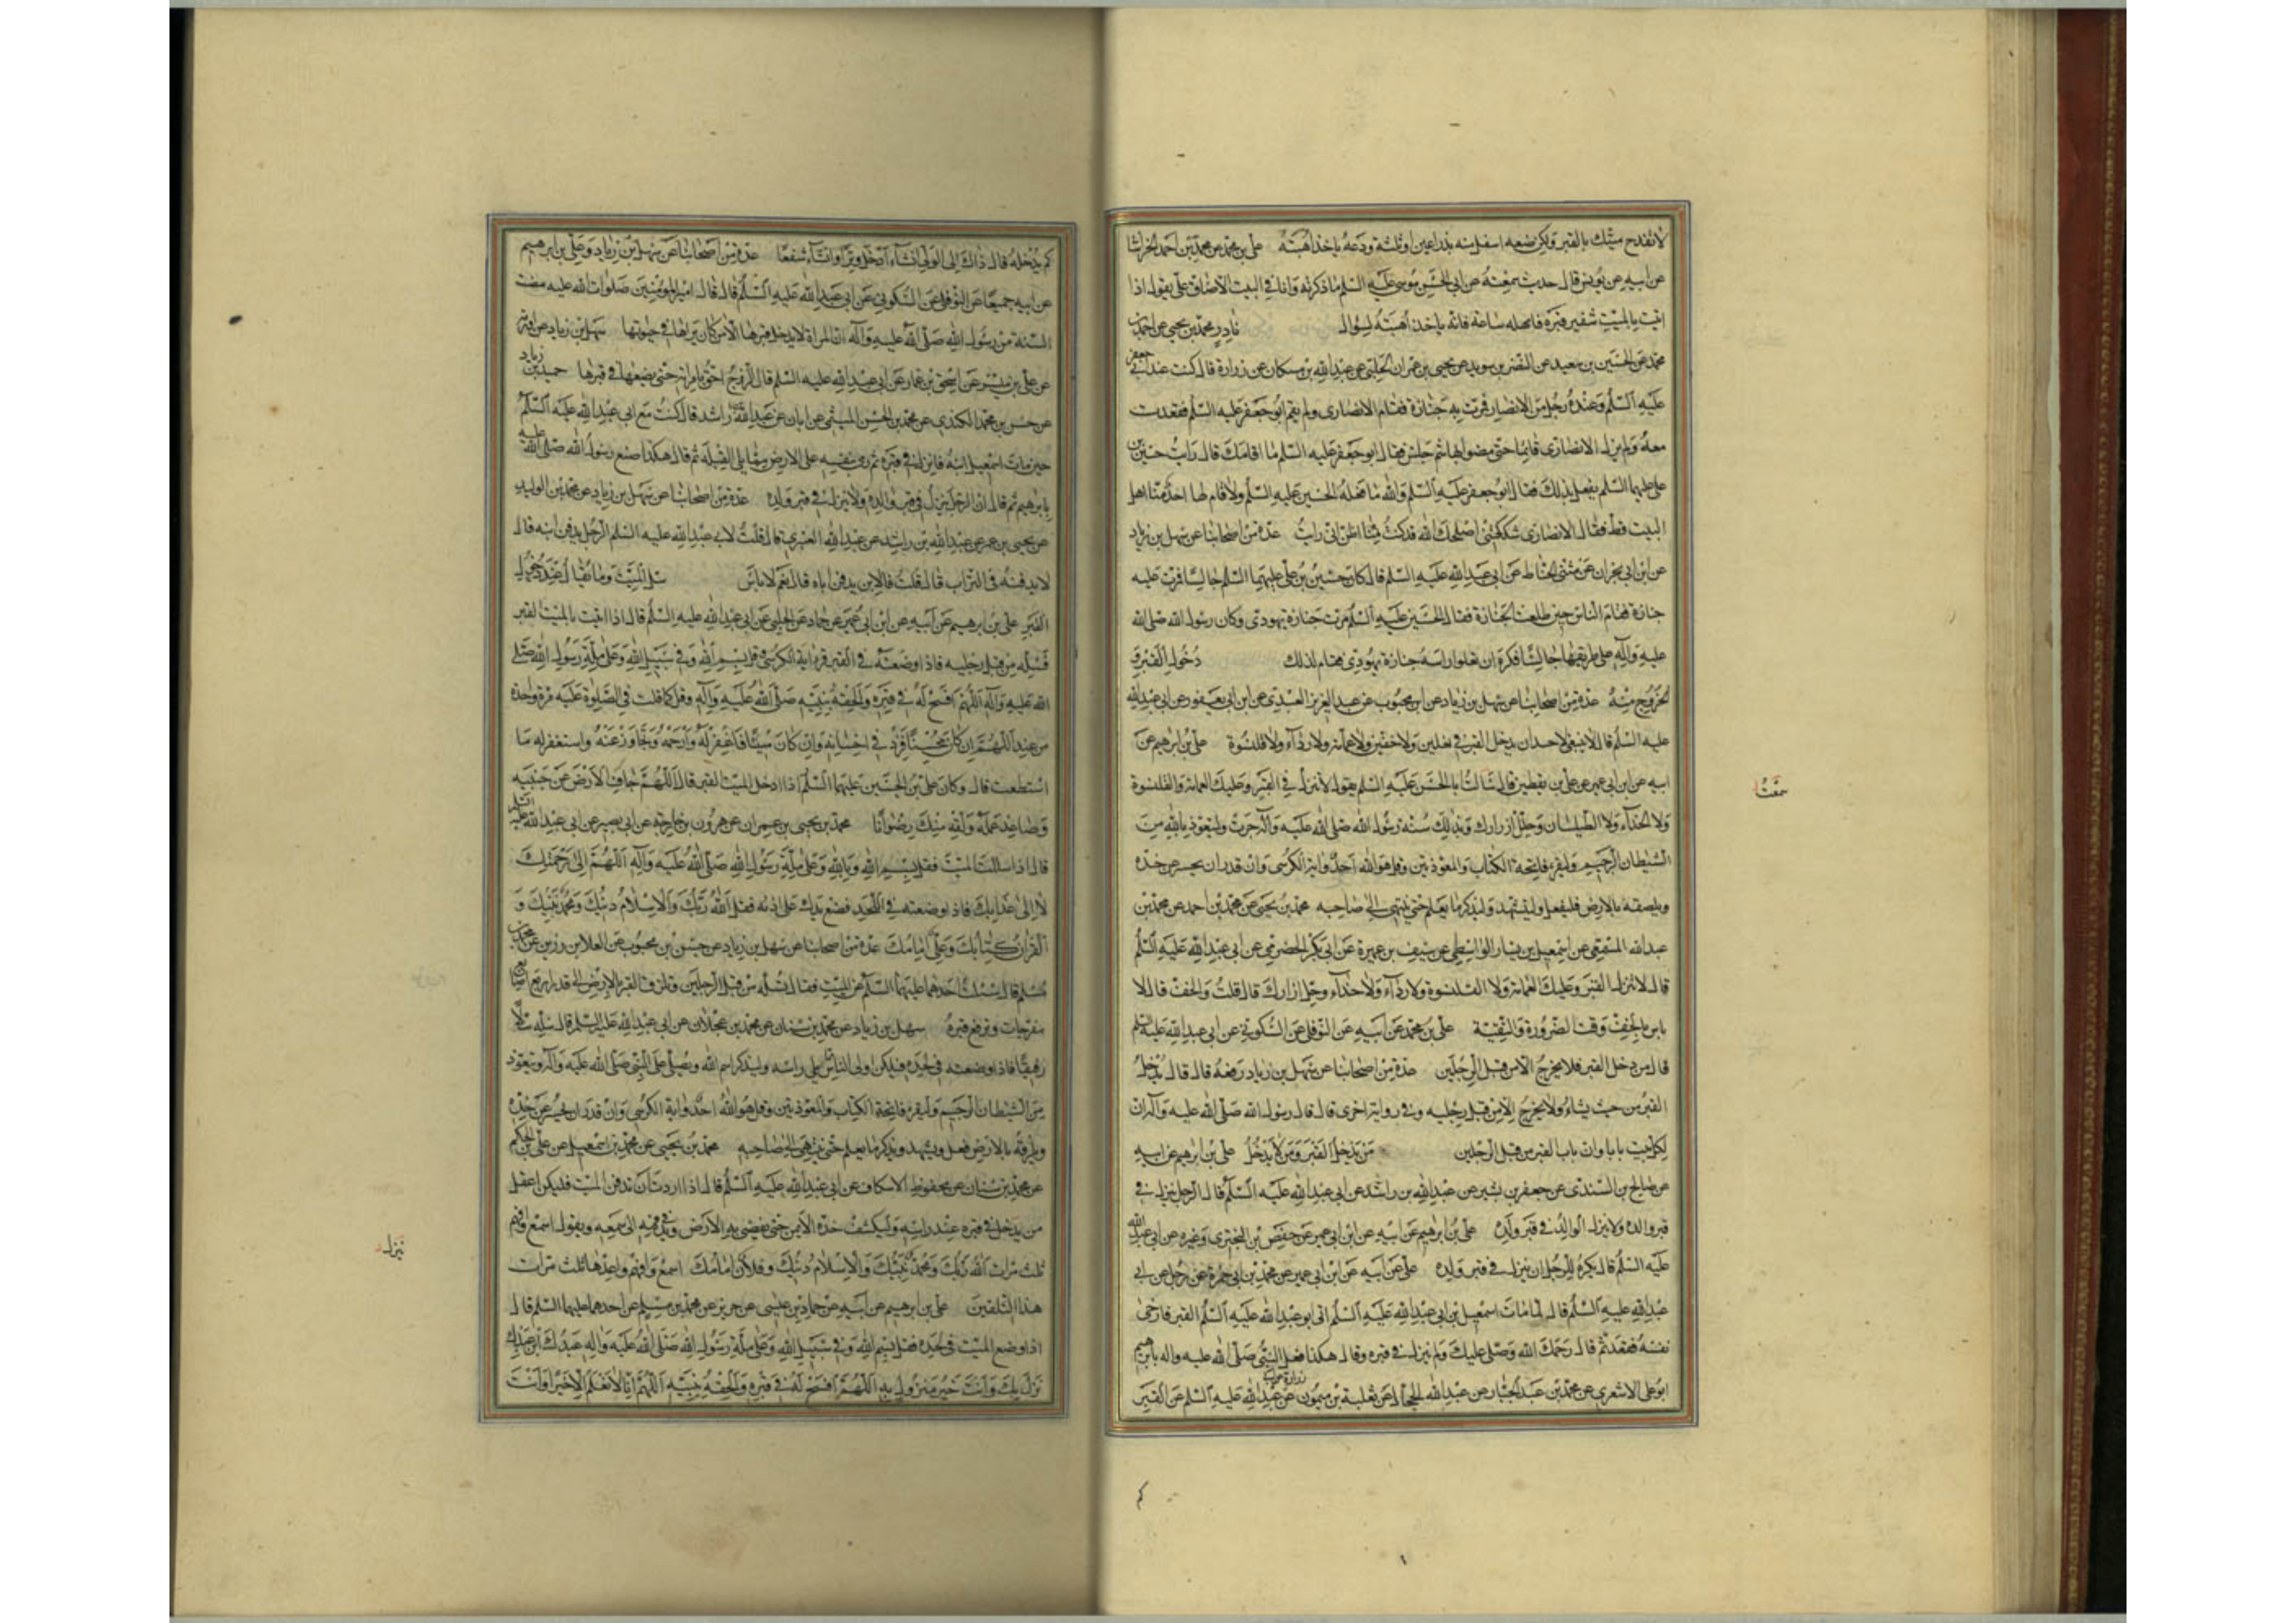 لا تفدح ميتك بالقبر ولكن ضعه اسفل منه بذراعين او ثلثة ودعه ياخذ اهبته علي بن محمد عن محمد بن احمد الخراسا
عن ابيه عن يونس قال حديث سمعته عن ابي الحسن موسى عليه السلم ما ذكرته وانا في البيت الا ضاق علي يقول اذا
اتيت بالميت شفير قبره فامهله ساعة فانه ياخذ اهبته لسؤال نادر محمد بن يحيى عن احمد بن
محمد عن الحسين بن سعيد عن النضر بن سويد عن يحيى بن عمران الحلبي عن عبد الله بن مسكان عن زرارة قال كنت عند ابي جعفر
عليه السلم وعنده رجل من الانصار فمرت به جنازة فقام الانصاري ولم يقم ابو جعفر عليه السلم فقعدت
معه ولم يزل الانصاري قائما حتى مضوا بها ثم جلس فقال ابو جعفر عليه السلم ما اقامك قال رايت حسين بن
علي عليهما السلم يفعل ذلك فقال ابو جعفر عليه السلم والله ما فعله الحسين عليه السلم ولا قام لها احد منا اهل
البيت قط فقال الانصاري شككتني اصلحك الله قد كنت اظن اني رايت عدة من اصحابنا عن سهل بن زياد
عن ابن ابي نجران عن مثنى الحناط عن ابي عبد الله عليه السلم قال كان حسين بن علي عليهما السلم جالسا فمرت عليه
جنازة فقام الناس حين طلعت الجنازة فقال الحسين عليه السلم مرت جنازة يهودي وكان رسول الله صلى الله
عليه وآله على طريقها جالسا فكره ان تعلو راسه جنازة يهودي فقام لذلك دخول القبر و
الخروج منه عدة من اصحابنا عن سهل بن زياد عن ابن محبوب عن عبد العزيز العبدي عن ابن ابي يعفور عن ابي عبد الله
عليه السلم قال لا ينبغي لاحد ان يدخل القبر في نعلين ولا خفين ولا عمامة ولا رداء ولا قلنسوة علي بن ابرهيم عن
ابيه عن ابن ابي عمير عن علي بن يقطين قال سالت ابا الحسن عليه السلم يقول لا تنزل في القبر وعليك العمامة والقلنسوة
ولا الحذاء ولا الطيلسان وحلل ازرارك وبذلك سنة رسول الله صلى الله عليه وآله جرت وليتعوذ بالله من
الشيطان الرجيم وليقرء فاتحة الكتاب والمعوذتين وقل هو الله احد واية الكرسي وان قدر ان يحسر عن خده
ويلصقه بالارض فليفعل وليتشهد وليذكر ما يعلم حتى ينتهي الى صاحبه محمد بن يحيى عن محمد بن احمد عن محمد بن
عبد الله المسمعي عن اسمعيل بن يسار الواسطي عن سيف بن عميرة عن ابي بكر الحضرمي عن ابي عبد الله عليه السلم
قال لا تنزل القبر وعليك العمامة ولا القلنسوة ولا رداء ولا حذاء وحل ازارك قال قلت والخف قال لا
باس بالخف وقت الضرورة والتقية علي بن محمد عن ابيه عن النوفلي عن السكوني عن ابي عبد الله عليه السلم
قال من دخل القبر فلا يخرج الا من قبل الرجلين عدة من اصحابنا عن سهل بن زياد رفعه قال قال يدخل
القبر من حيث يشاء ولا يخرج الا من قبل رجليه وفي رواية اخرى قال قال رسول الله صلى الله عليه وآله ان
لكل بيت بابا وان باب القبر من قبل الرجلين من يدخل القبر ومن لا يدخل علي بن ابرهيم عن ابيه
عن صالح بن السندي عن جعفر بن بشير عن عبد الله بن راشد عن ابي عبد الله عليه السلم قال الرجل ينزل في
قبر والده ولا ينزل الوالد في قبر ولده علي بن ابرهيم عن ابيه عن ابن ابي عمير عن حفص بن البختري وغيره عن ابي عبد الله
عليه السلم قال يكره للرجل ان ينزل في قبر ولده علي عن ابيه عن ابن ابي عمير عن محمد بن ابي حمزة عن رجل عن ابي
عبد الله عليه السلم قال لما مات اسمعيل بن ابي عبد الله عليه السلم اتى ابو عبد الله عليه السلم القبر فارخى
نفسه فقعد ثم قال رحمك الله وصلى عليك ولم ينزل في قبره وقال هكذا فعل النبي صلى الله عليه واله بابرهيم
ابو علي الاشعري عن محمد بن عبد الجبار عن عبد الله الحجال عن ثعلبة بن ميمون عن زرارة عن ابي عبد الله عليه السلم عن القبر
سمعت
كم
كم يدخله قال ذاك الى الولي ان شاء ادخل وترا وان شاء شفعا عدة من اصحابنا عن سهل بن زياد وعلي بن ابرهيم
عن ابيه جميعا عن النوفلي عن السكوني عن ابي عبد الله عليه السلم قال قال امير المؤمنين صلوات الله عليه مضت
السنة من رسول الله صلى الله عليه وآله ان المراة لا يدخل قبرها الا من كان يراها في حيوتها سهل بن زياد عن
عن علي بن ميسر عن اسحق بن عمار عن ابي عبد الله عليه السلم قال الزوج احق بامراته حتى يضعها في قبرها حميد بن زياد
عن حسن بن محمد الكندي عن محمد بن الحسن الميثمي عن ابان عن عبد الله بن راشد قال كنت مع ابي عبد الله عليه السلم
حين مات اسمعيل ابنه فانزل في قبره ثم رمى بنفسه على الارض مما يلي القبلة ثم قال هكذا صنع رسول الله صلى الله عليه
بابرهيم ثم قال ان الرجل ينزل في قبر والده ولا ينزل في قبر ولده عدة من اصحابنا عن سهل بن زياد عن محمد بن الوليد
عن يحيى بن عمر عن عبد الله بن راشد عن عبد الله العنبري قال قلت لابي عبد الله عليه السلم الرجل يدفن ابنه قال
لا يدفنه في التراب قال قلت فالابن يدفن اباه قال نعم لا باس سل الميت وما يقال عند دخول
القبر علي بن ابرهيم عن ابيه عن ابن ابي عمير عن حماد عن الحلبي عن ابي عبد الله عليه السلم قال اذا اتيت بالميت القبر
فسله من قبل رجليه فاذا وضعته في القبر فاقرء اية الكرسي وقل بسم الله وفي سبيل الله وعلى ملة رسول الله صلى
الله عليه وآله اللهم افسح له في قبره والحقه بنبيه صلى الله عليه وآله وقل كما قلت في الصلوة عليه مرة واحدة
من عند اللهم ان كان محسنا فزد في احسانه وان كان مسيئا فاغفر له وارحمه وتجاوز عنه واستغفر له ما
استطعت قال وكان علي بن الحسين عليهما السلم اذا ادخل الميت القبر قال اللهم جاف الارض عن جنبيه
وصاعد عمله ولقه منك رضوانا محمد بن يحيى بن عمران عن هرون بن خارجة عن ابي بصير عن ابي عبد الله عليه السلم
قال اذا سللت الميت فقل بسم الله وبالله وعلى ملة رسول الله صلى الله عليه وآله اللهم الى رحمتك
لا الى عذابك فاذا وضعته في اللحد فضع يدك على اذنه فقل الله ربك والاسلام دينك ومحمد نبيك و
القرآن كتابك وعلي امامك عدة من اصحابنا عن سهل بن زياد عن حسن بن محبوب عن العلا بن رزين عن محمد بن
مسلم قال سالت احدهما عليهما السلم عن الميت فقال تسله من قبل الرجلين وتلزق القبر بالارض الى قدر اربع اصابع
مفرجات وترفع قبره سهل بن زياد عن محمد بن سنان عن محمد بن عجلان عن ابي عبد الله عليه السلم قال سله سلا
رفيقا فاذا وضعته في لحده فليكن اولى الناس مما يلي راسه وليذكر اسم الله ويصلي على النبي صلى الله عليه وآله ويتعوذ
من الشيطان الرجيم وليقرء فاتحة الكتاب والمعوذتين وقل هو الله احد واية الكرسي وان قدر ان يحسر عن خده
ويلزقه بالارض فعل ويتشهد ويذكر ما يعلم حتى ينتهي الى صاحبه محمد بن يحيى عن محمد بن اسمعيل عن علي بن الحكم
عن محمد بن سنان عن محفوظ الاسكاف عن ابي عبد الله عليه السلم قال اذا اردت ان تدفن الميت فليكن اعقل
من يدخل في قبره عند راسه وليكشف خده الايمن حتى يفضي به الى الارض ويدني فمه الى سمعه ويقول اسمع وافهم
ثلث مرات الله ربك ومحمد نبيك والاسلام دينك وفلان امامك اسمع وافهم واعدها ثلث مرات
هذا التلقين علي بن ابرهيم عن ابيه عن حماد بن عيسى عن حريز عن محمد بن مسلم عن احدهما عليهما السلم قال
اذا وضع الميت في لحده فقل بسم الله وفي سبيل الله وعلى ملة رسول الله صلى الله عليه واله عبدك ابن عبدك
نزل بك وانت خير منزول به اللهم افسح له في قبره والحقه بنبيه اللهم انا لا نعلم الا خيرا وانت
نزل